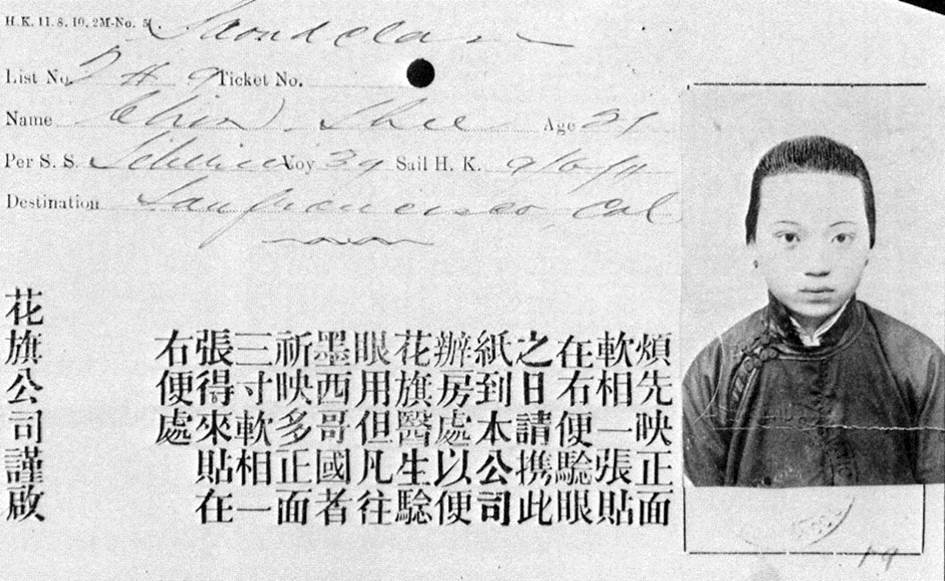 H.K. 11. 8. 10. 2M-No. 5
Second class
List No. Ticket No.
Name Chin Shee Age 21
Per S. S. Siberia Voy 39 Sail H. K.
Destination San francisco, Cal
煩先映正面
軟相一張貼
在右便騐眼
之日請携此
紙到本公司
辦房處以便
花旗醫生騐
眼用但凡往
墨西哥國者
祈映多正面
三寸軟相一
張得來貼在
右便處
花旗公司謹啟